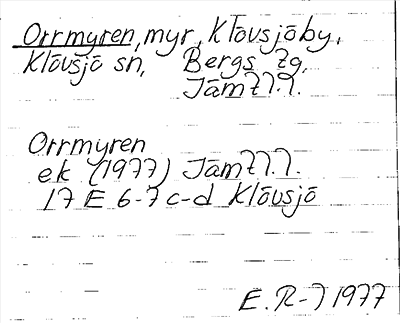 Orrmyren, myr, Klövsjöby,
Klövsjö sn, Bergs tg,
Jämtl. l.
Orrmyren
ek (1977) Jämtl. l.
17 E 6-7 c-d Klövsjö
E. R-J 1977